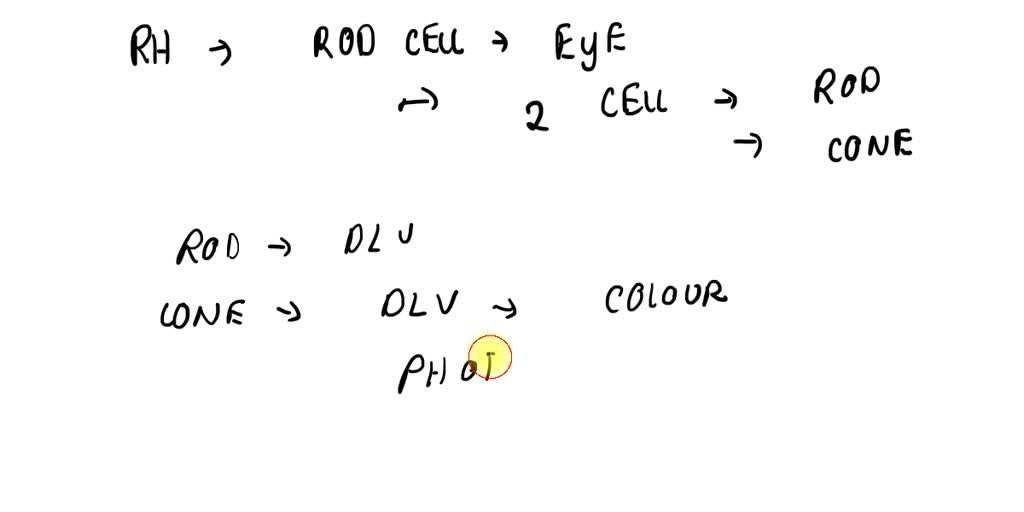 RH → ROD CELL → EyE
→ 2 CELL → ROD
→ CONE
ROD → DLV
CONE → DLV → COLOUR
PHOT